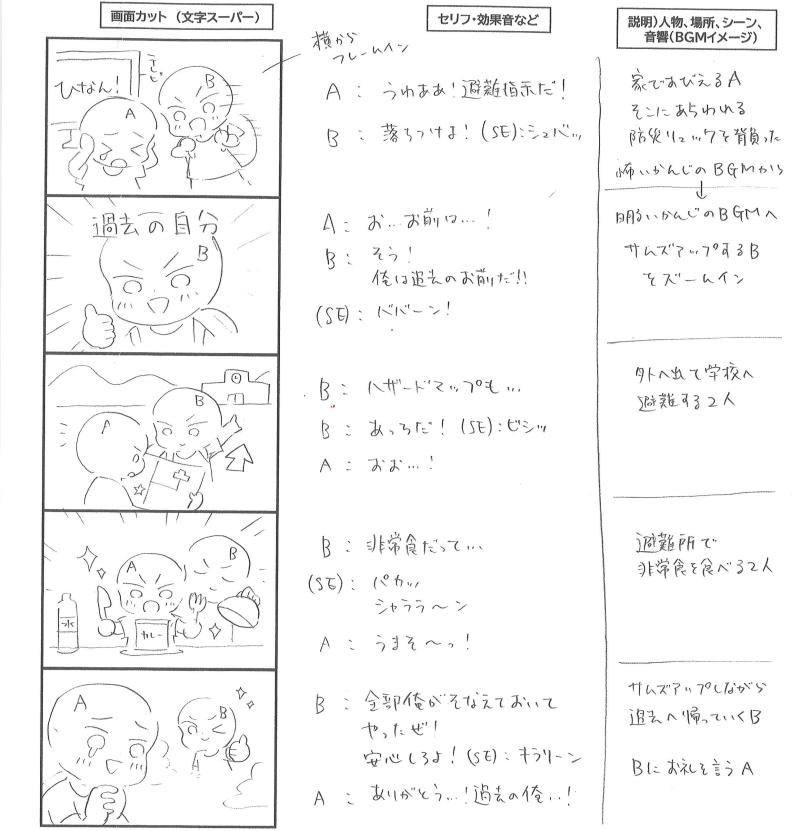 画面カット（文字スーパー）
セリフ・効果音など
説明）人物、場所、シーン、
音響（BGMイメージ）
横から
フレームイン
ひなん！
A
B
A：うわああ！避難指示だ！
B：落ちつけよ！(SE)：シュバッ
家でおびえるA
そこにあらわれる
防災リュックを背負った
怖いかんじのBGMから
過去の自分
B
A：お…お前は…！
B：そう！
俺は過去のお前だ!!
(SE)：ババーン！
明るいかんじのBGMへ
サムズアップするB
をズームイン
A
B
B：ハザードマップも…
B：あっちだ！(SE)：ビシッ
A：おお…！
外へ出て学校へ
避難する2人
A
B
水
カレー
B：非常食だって…
(SE)：パカッ
シャララ～ン
A：うまそ～っ！
避難所で
非常食を食べる2人
A
B
A
B：全部俺がそなえておいて
やったぜ！
安心しろよ！(SE)：キラリーン
A：ありがとう…！過去の俺…！
サムズアップしながら
過去へ帰っていくB
Bにお礼を言うA